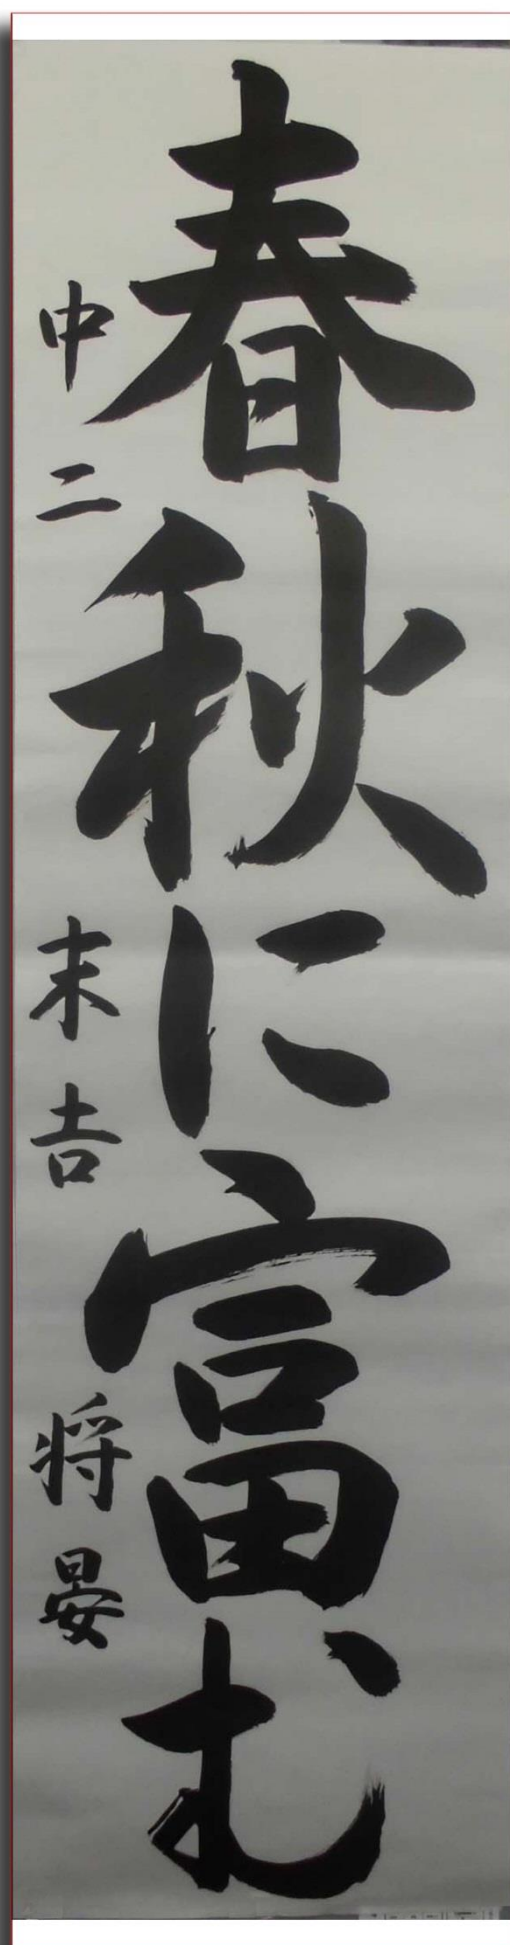 春秋に富む
中二 末吉 将晏